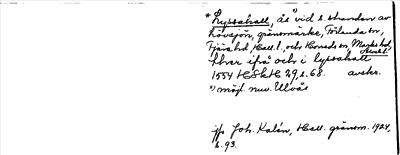 * Lyssahall, ås *) vid s. stranden av
Lövsjön, gränsmärke, Förlanda sn,
Fjäre hd, Hall. l. och Horreds sn, Marks hd,
Älvsb. l.
thær ifrå och i lyssahall
1554 HSkH 29, s. 68. avskr.
*) möjl. nuv. Ulvås
jfr Joh. Kalén, Hall. gränsm. 1924,
s. 93.